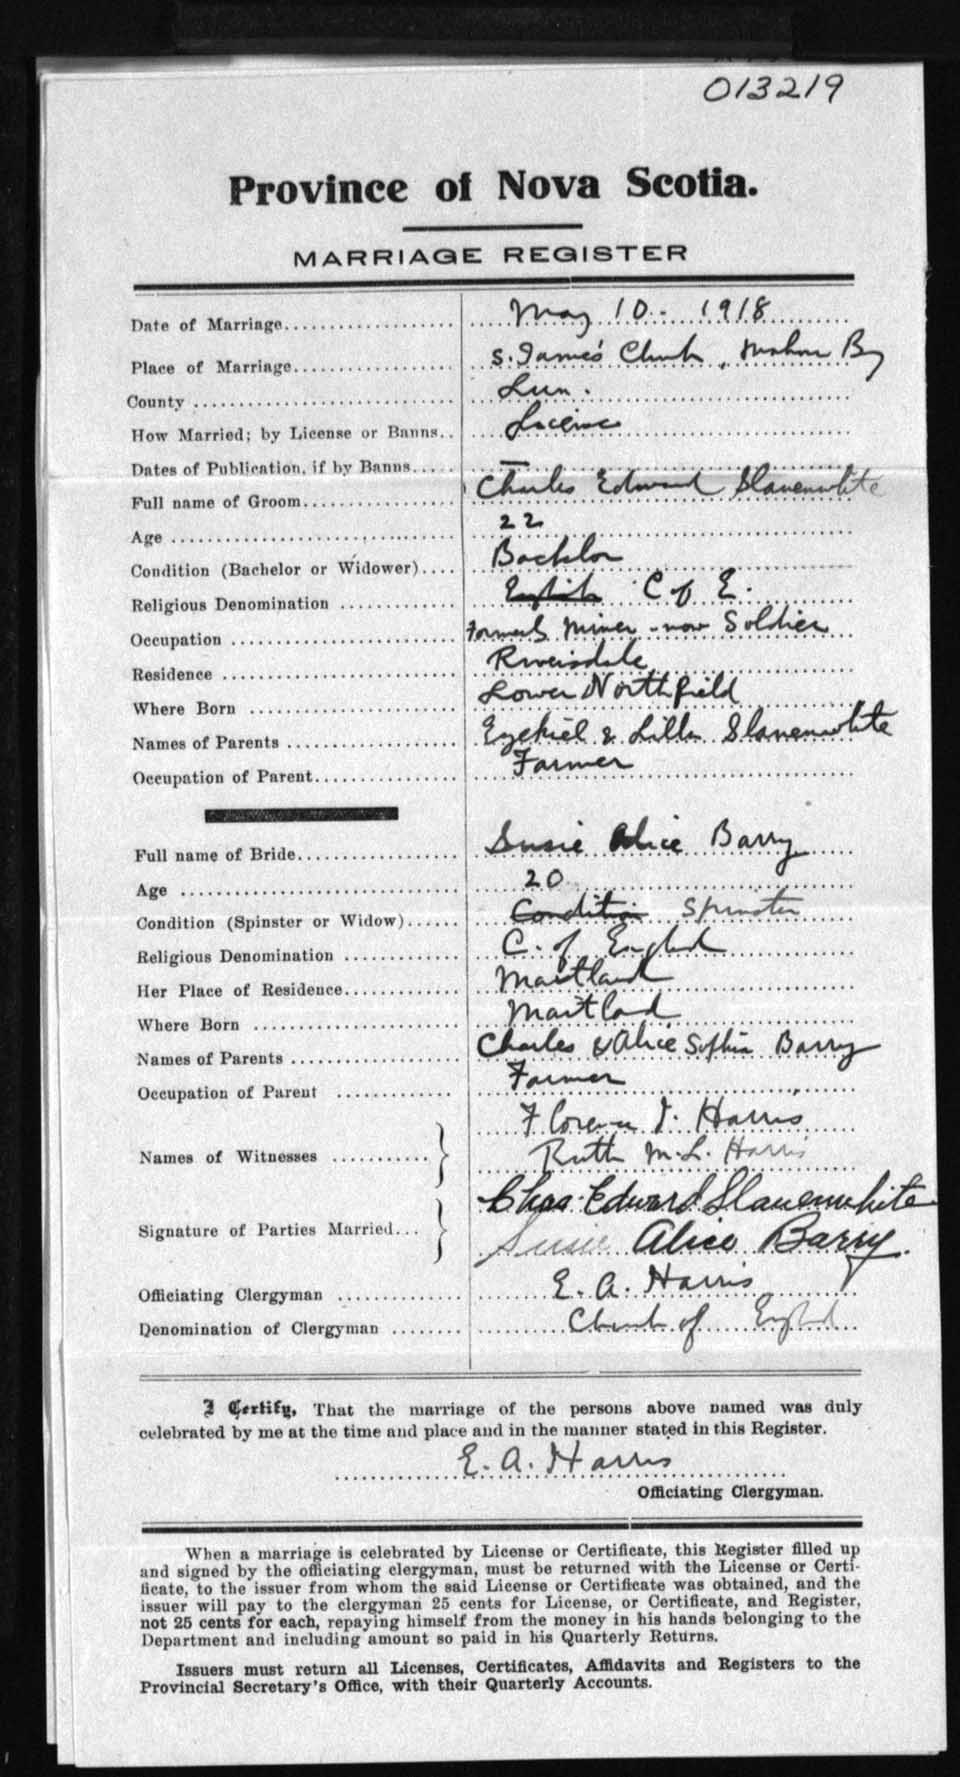 013219
Province of Nova Scotia.
MARRIAGE REGISTER
Date of Marriage.................... May 10 - 1918
Place of Marriage................... S. James' Church, Mahone Bay
County .............................. Lun.
How Married; by License or Banns.. License
Dates of Publication, if by Banns..... —
Full name of Groom.................. Charles Edward Slavenwhite
Age .................................. 22
Condition (Bachelor or Widower).... Bachelor
Religious Denomination ............. English C of E.
Occupation .......................... Formerly Miner - now Soldier
Residence ........................... Riversdale
Where Born ........................ Lower Northfield
Names of Parents ................... Ezekiel & Lilla Slavenwhite
Occupation of Parent................ Farmer
Full name of Bride.................. Susie Alice Barry
Age ................................ 20
Condition (Spinster or Widow)...... Condition Spinster
Religious Denomination ............. C. of England
Her Place of Residence............. Maitland
Where Born ........................ Maitland
Names of Parents ................... Charles & Alice Sophia Barry
Occupation of Parent .............. Farmer
Florence J. Harris
Names of Witnesses ........... } Ruth M. L. Harris
Chas. Edward Slauenwhite
Signature of Parties Married... } Susie Alice Barry.
Officiating Clergyman .............. E. A. Harris
Denomination of Clergyman ........ Church of England
I Certify, That the marriage of the persons above named was duly
celebrated by me at the time and place and in the manner stated in this Register.
E. A. Harris
Officiating Clergyman.
When a marriage is celebrated by License or Certificate, this Register filled up
and signed by the officiating clergyman, must be returned with the License or Certi-
ficate, to the issuer from whom the said License or Certificate was obtained, and the
issuer will pay to the clergyman 25 cents for License, or Certificate, and Register,
not 25 cents for each, repaying himself from the money in his hands belonging to the
Department and including amount so paid in his Quarterly Returns.
Issuers must return all Licenses, Certificates, Affidavits and Registers to the
Provincial Secretary's Office, with their Quarterly Accounts.